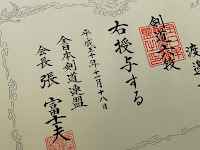 渡邊
剣道六段
右授与する
平成二十年十一月十八日
全日本剣道連盟
会長 張 富士夫